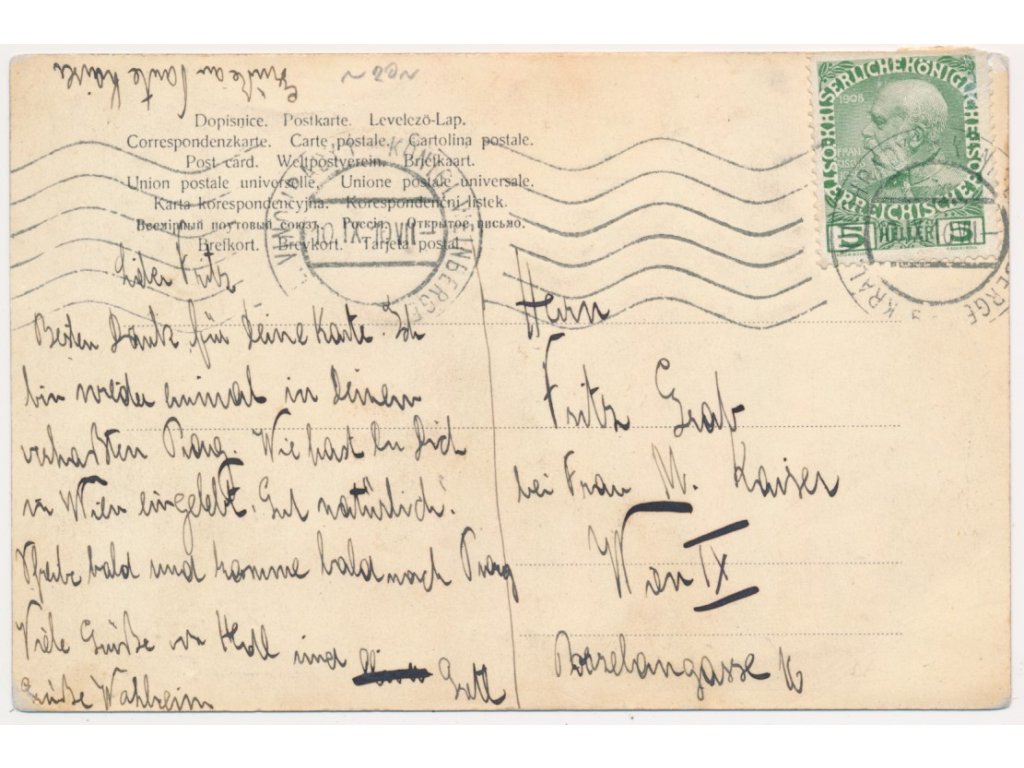 Grüße an Tante Kaiser
~20~
Dopisnice. Postkarte. Levelező-Lap.
Correspondenzkarte. Carte postale. Cartolina postale.
Post card. Weltpostverein. Briefkaart.
Union postale universelle. Unione postale universale.
Karta korespondencyjna. Korespondenční lístek.
Всемірный почтовый союзъ. Россія. Открытое письмо.
Brefkort. Brevkort. Tarjeta postal.
KAISERLICHE KÖNIGLICHE ÖSTERREICHISCHE POST
1908
FRANZ JOSEF I
5 HELLER 5
Lieber Fritz
Besten Dank für deine Karte. Ich
bin wieder einmal in deinem
verhaßten Prag. Wie hast Du Dich
in Wien eingelebt. Gut natürlich!
Schreibe bald und komme bald nach Prag
Viele Grüße von und Gretl
Grüße
Herrn
Fritz Graf
bei Frau M. Kaiser
Wien IX
Porzelangasse